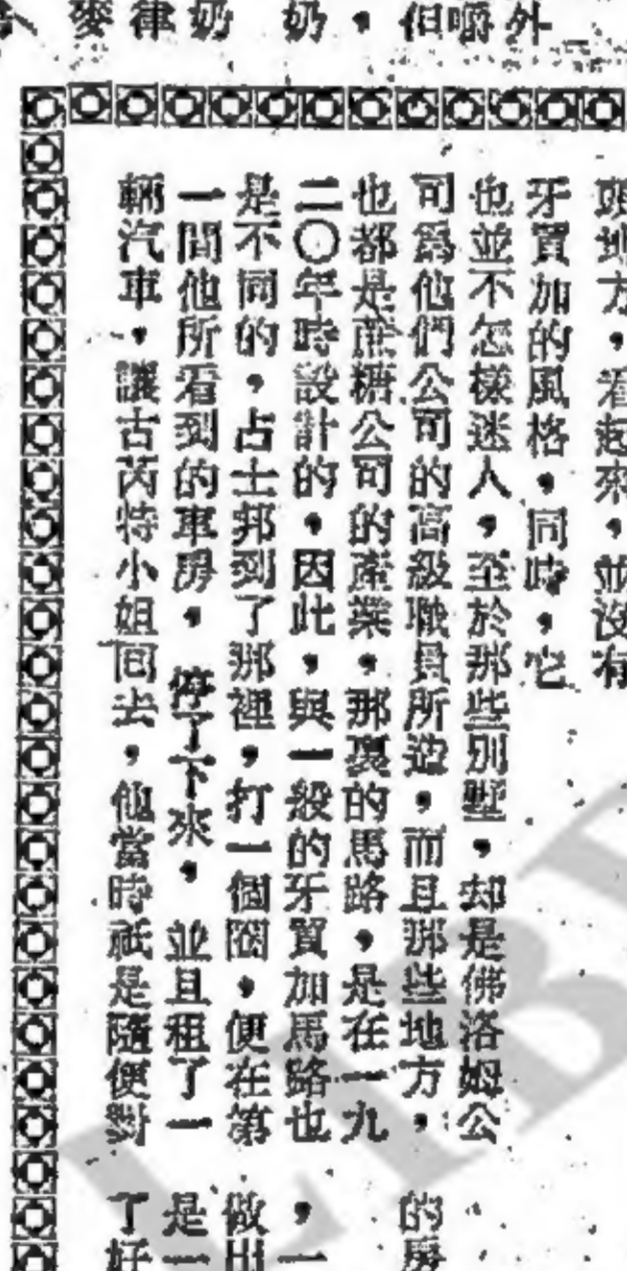 麥律奶　奶，但嚼外
頭地方，看起來，並沒有
牙買加的風格，同時，它
也並不怎樣迷人，至於那些別墅，却是佛洛姆公
司爲他們公司的高級職員所造，而且那些地方，
也都是蔗糖公司的產業，那裏的馬路，是在一九
二〇年時設計的，因此，與一般的牙買加馬路也
是不同的，占士邦到了那裡，打一個圈，便在第
一間他所看到的車房，停了下來，並且租了一
輛汽車，讓古芮特小姐囘去，他當時祇是隨便對
的房
，一
做出一
是一
了好